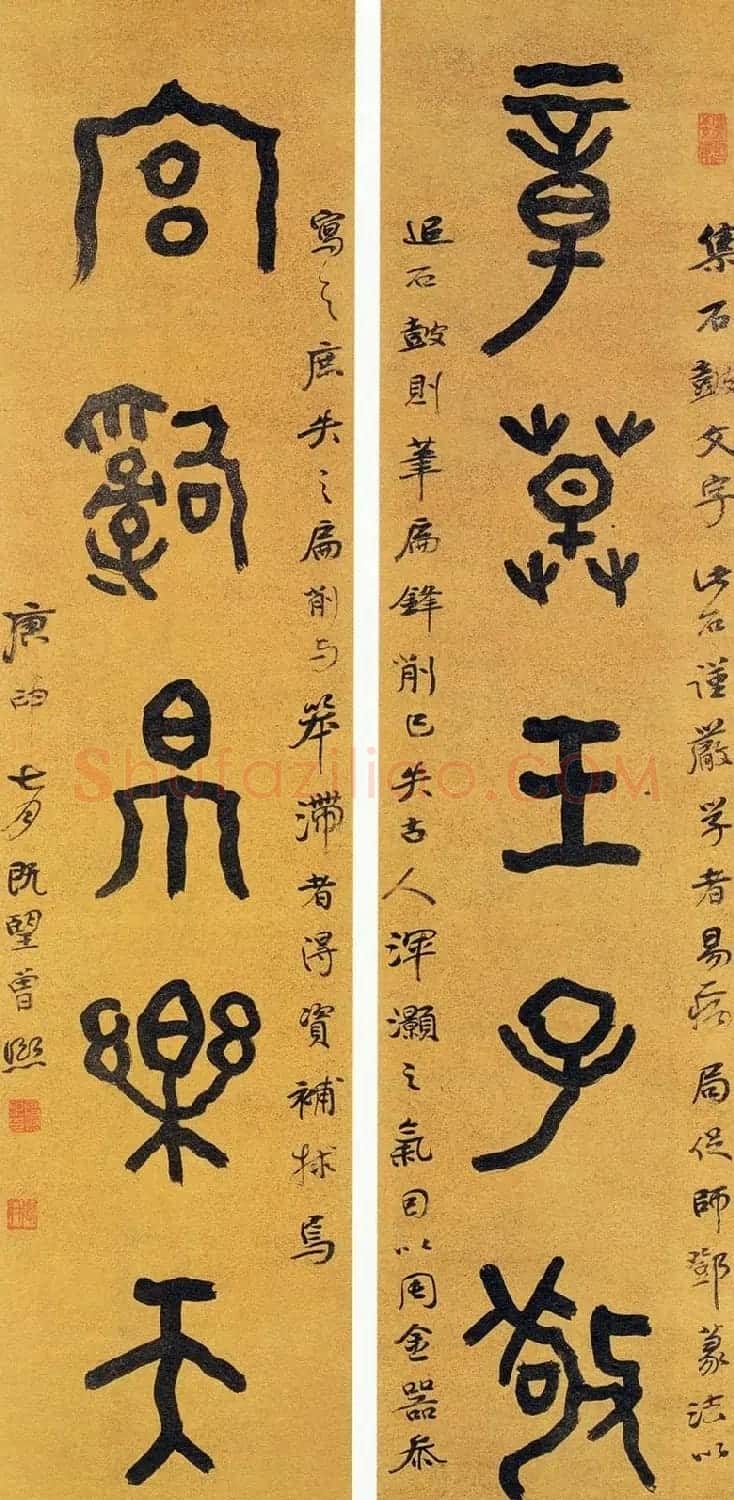 集石鼓文字此石謹嚴学者易病局促師鄧篆法以
章草王子敬
追石鼓則筆扁鋒削已失古人渾灝之氣因以周金器叅
寫之庶失之扁削与笨滯者得資補捄焉
宮辭帛樂天
庚申七月既望曾熙
Shufaziliao.COM